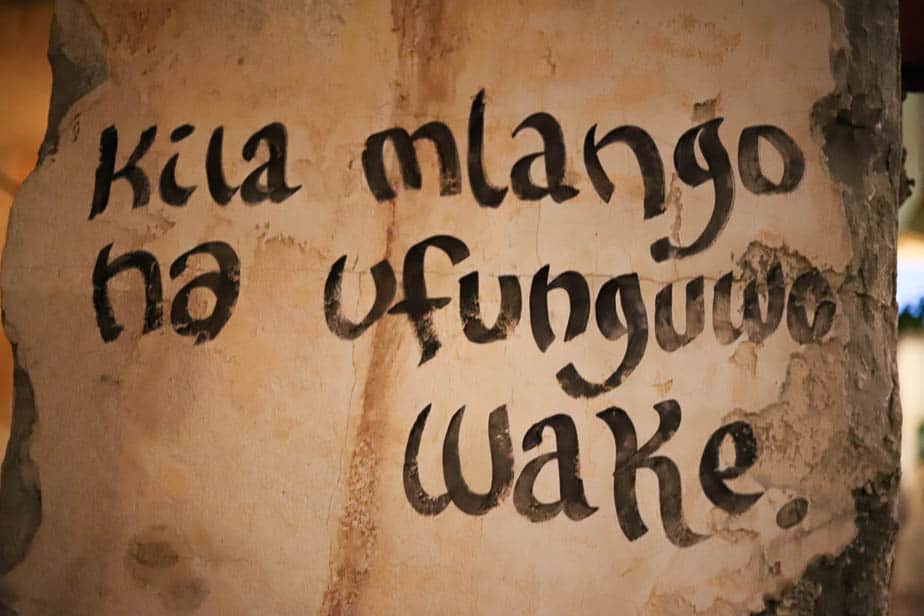 Kila mlango
na ufunguwo
wake.